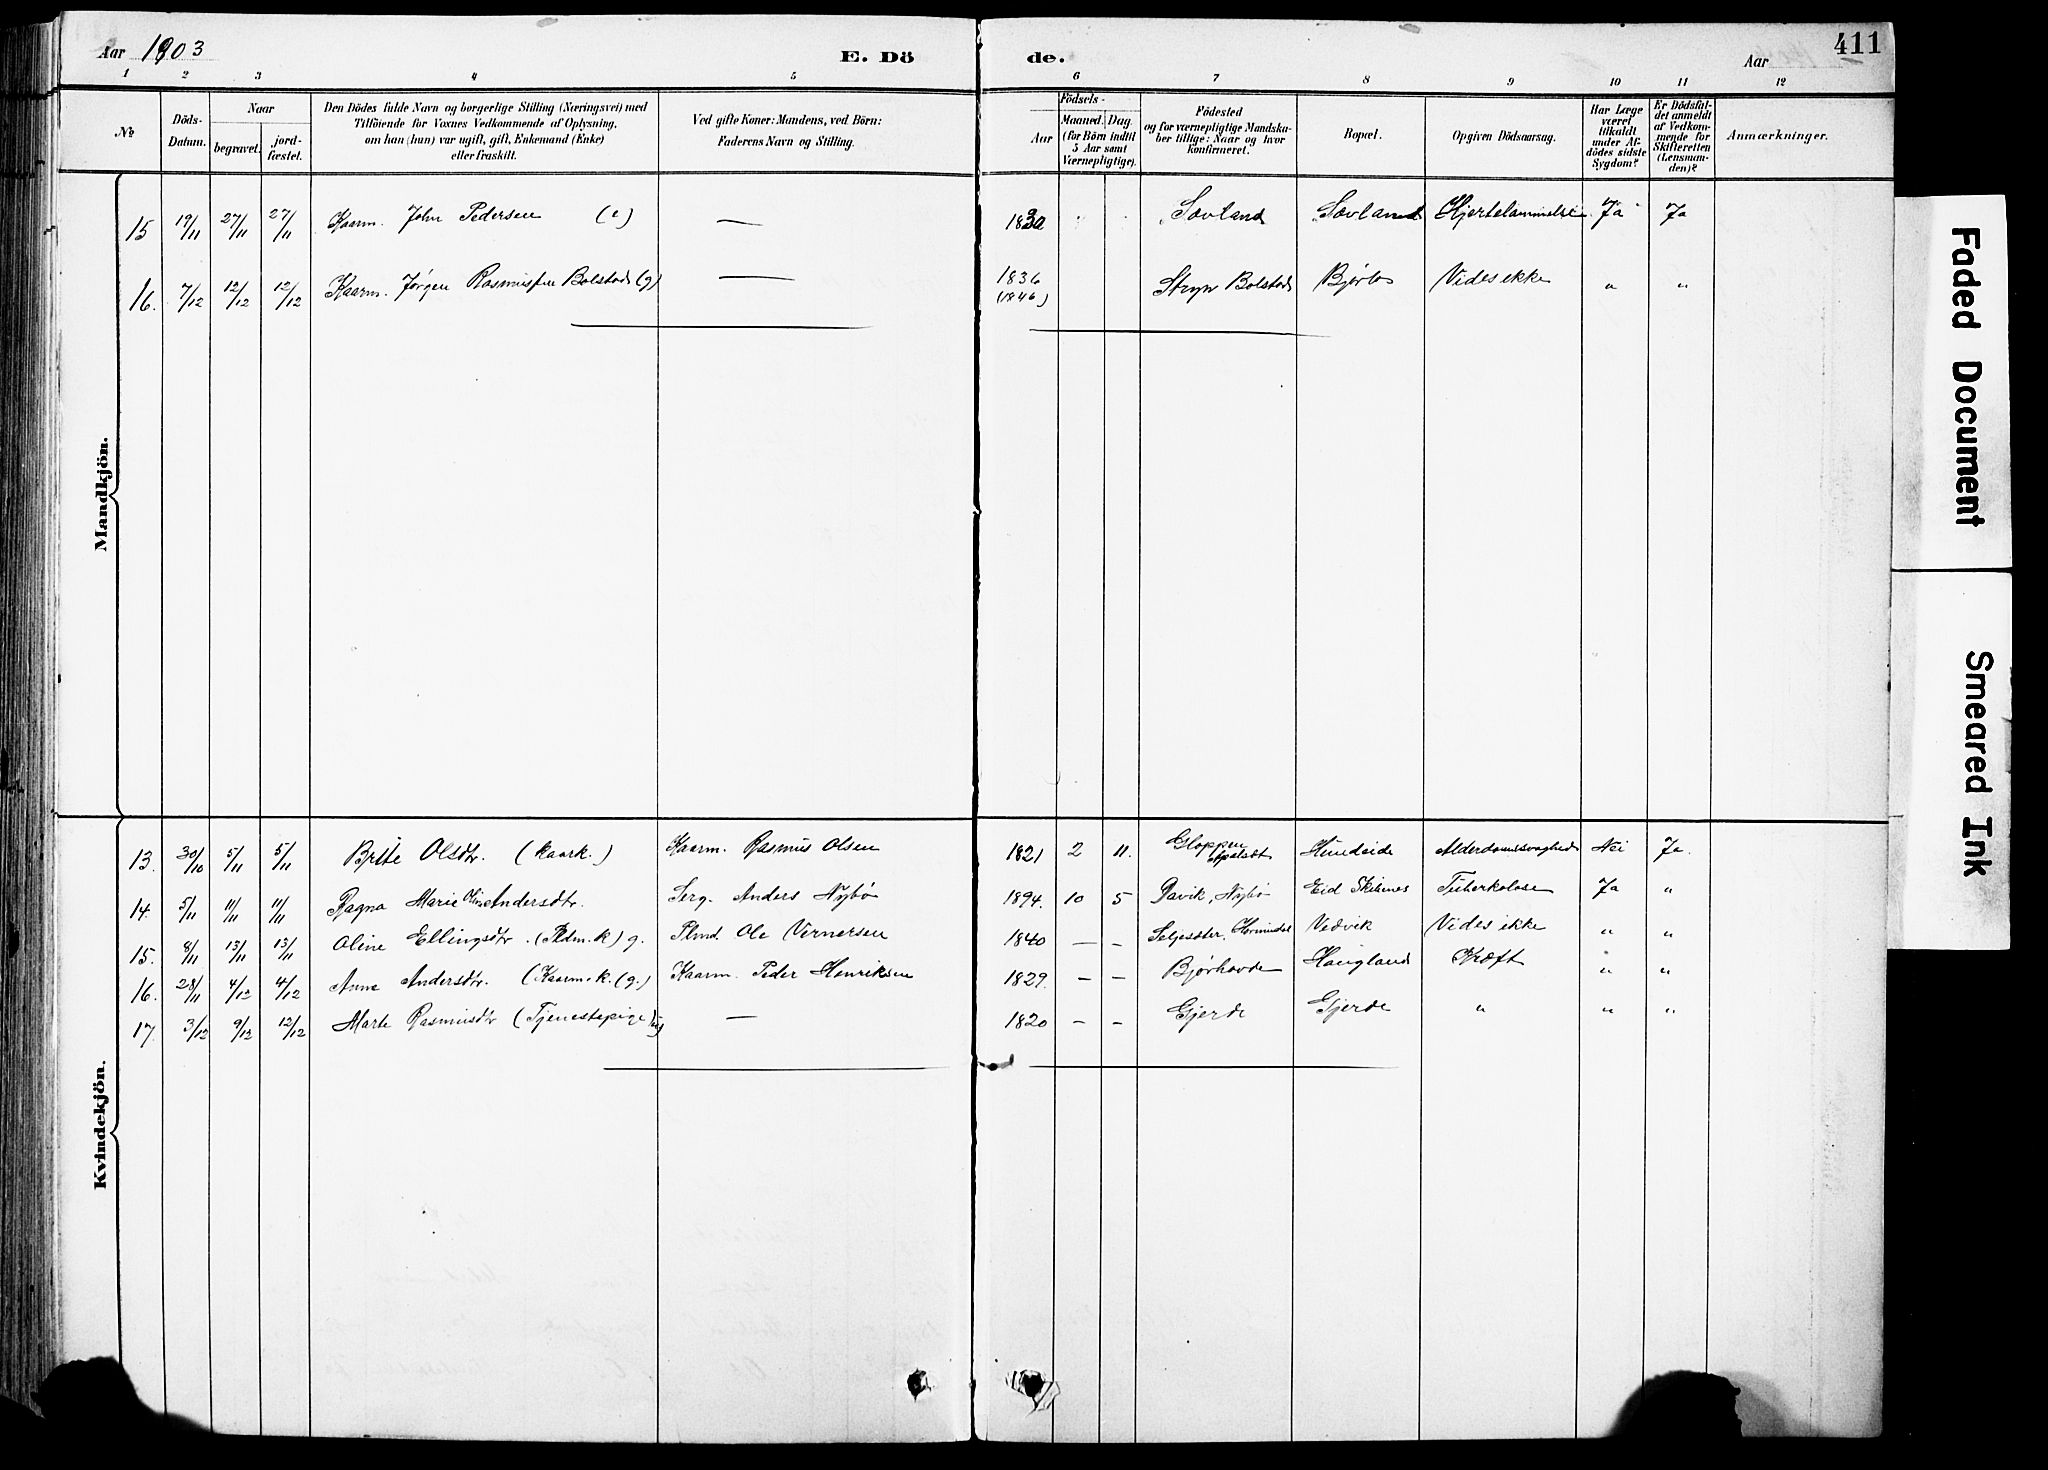 Aar 1903
E. Döde.
Aar
411
1 2 3 4 5 6 7 8 9 10 11 12
№
Döds-Datum.
Naar
begravet.
jord-fæstet.
Den Dödes fulde Navn og borgerlige Stilling (Næringsvei) med
Tilföiende for Voxnes Vedkommende af Oplysning,
om han (hun) var ugift, gift, Enkemand (Enke)
eller fraskilt.
Ved gifte Koner: Mandens, ved Börn:
Faderens Navn og Stilling.
Födsels-
Aar
Maaned. Dag.
(for Börn indtil
5 Aar samt
Værnepligtige).
Födested
og for værnepligtige Mandska-
ber tillige: Naar og hvor
konfirmeret.
Bopæl.
Opgiven Dödsaarsag.
Har Læge
været
tilkaldt
under Af-
dödes sidste
Sygdom?
Er Dödsfal-
det anmeldt
af Vedkom-
mende for
Skifteretten
(Lensman-
den)?
Anmærkninger.
Mandkjön.
15 19/11 27/11 27/11 Kaarm. John Pedersen (e) — Sævland Sævland Hjertelammelse Ja Ja
16. 7/12 12/12 12/12 Kaarm. Jørgen Rasmussen Bolstad (g) — 1836 (1846) Stryn Bolstad Bjørlo Vides ikke " "
Kvindekjön.
13. 30/10 5/11 5/11 Brite Olsdtr. (kaark.) Kaarm. Rasmus Olsen 1821 2 11. Gloppen Hundeide Alderdomssvaghed Nei Ja.
14. 5/11 11/11 11/11 Ragna Marie Andersdtr. Serg. Anders Nybø 1894. 10 5 Davik, Nybø Eid Tuberkolose Ja "
15. 8/11 13/11 13/11 Oline Ellingsdtr. (Pldm. k) g. Plmd. Ole Vernersen 1840 — — Seljesæter, Hornindal Vedvik Vides ikke " "
16. 28/11 4/12 4/12 Anne Andersdtr. (Kaarm. k. (g.) Kaarm. Peder Henriksen 1829. — — Bjørhovde Haugland Kræft " "
17. 3/12 9/12 12/12 Marte Rasmusdtr (Tjenestepige) — 1820 — — Gjerde Gjerde " " "
Faded Document
Smeared Ink